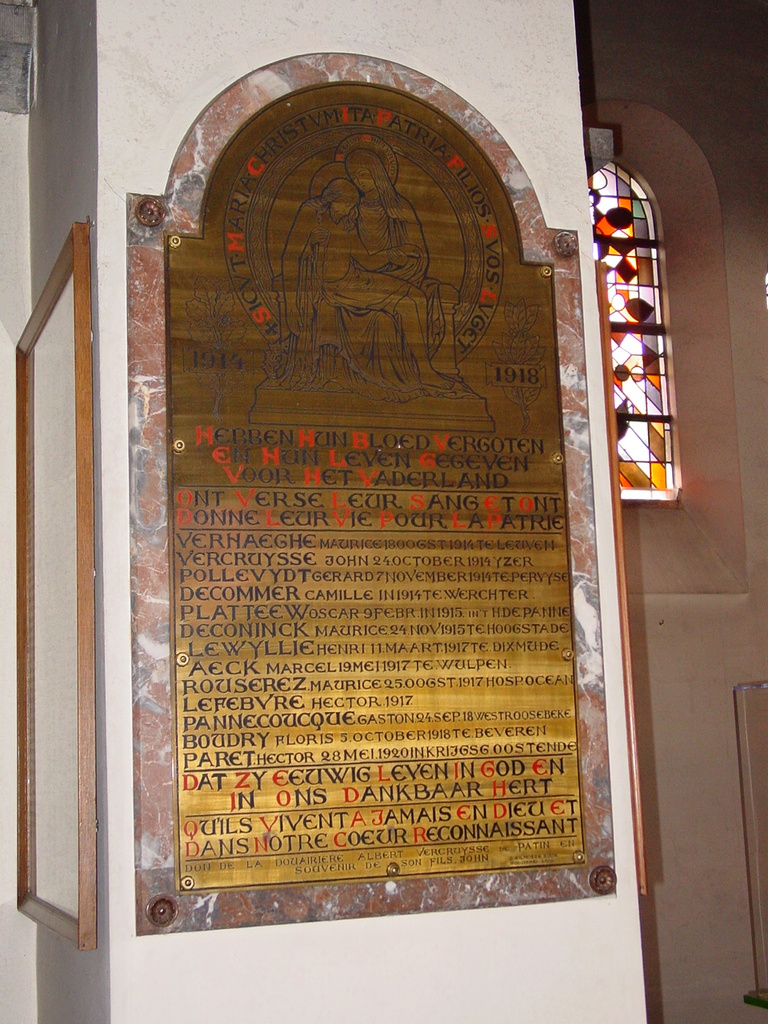 ✠ SICVT MARIA CHRISTVM ITA PATRIA FILIOS SVOS LVGET
1914 1918
HEBBEN HUN BLOED VERGOTEN
EN HUN LEVEN GEGEVEN
VOOR HET VADERLAND
ONT VERSE LEUR SANG ET ONT
DONNE LEUR VIE POUR LA PATRIE
VERHAEGHE MAURICE 18 OOGST 1914 TE LEUVEN
VERCRUYSSE JOHN 24 OCTOBER 1914 YZER
POLLEVYDT GERARD 7 NOVEMBER 1914 TE PERVYSE
DECOMMER CAMILLE IN 1914 TE WERCHTER
PLATTEEW OSCAR 9 FEBR. IN 1915. IN'T H. DE PANNE
DECONINCK MAURICE 24 NOV 1915 TE HOOGSTADE
LEWYLLIE HENRI 11. MAART. 1917 TE. DIXMUDE
AECK MARCEL 19 MEI 1917 TE WULPEN.
ROUSEREZ. MAURICE 25 OOGST 1917 HOSP. OCEAN
LEFEBVRE HECTOR. 1917
PANNECOUCQUE GASTON 24. SEP. 18 WESTROOSEBEKE
BOUDRY FLORIS 5. OCTOBER 1918 TE BEVEREN
PARET. HECTOR 28 MEI. 1920 IN KRIJGSG OOSTENDE
DAT ZY EEUWIG LEVEN IN GOD EN
IN ONS DANKBAAR HERT
QU'ILS VIVENT A JAMAIS EN DIEU ET
DANS NOTRE COEUR RECONNAISSANT
DON DE LA DOUAIRIERE ALBERT VERCRUYSSE DE PATIN EN
SOUVENIR DE SON FILS. JOHN